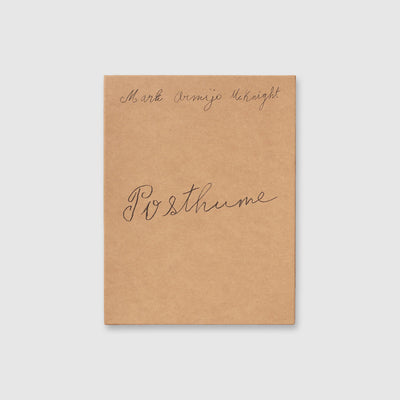 Mark Armijo McKnight
Posthume